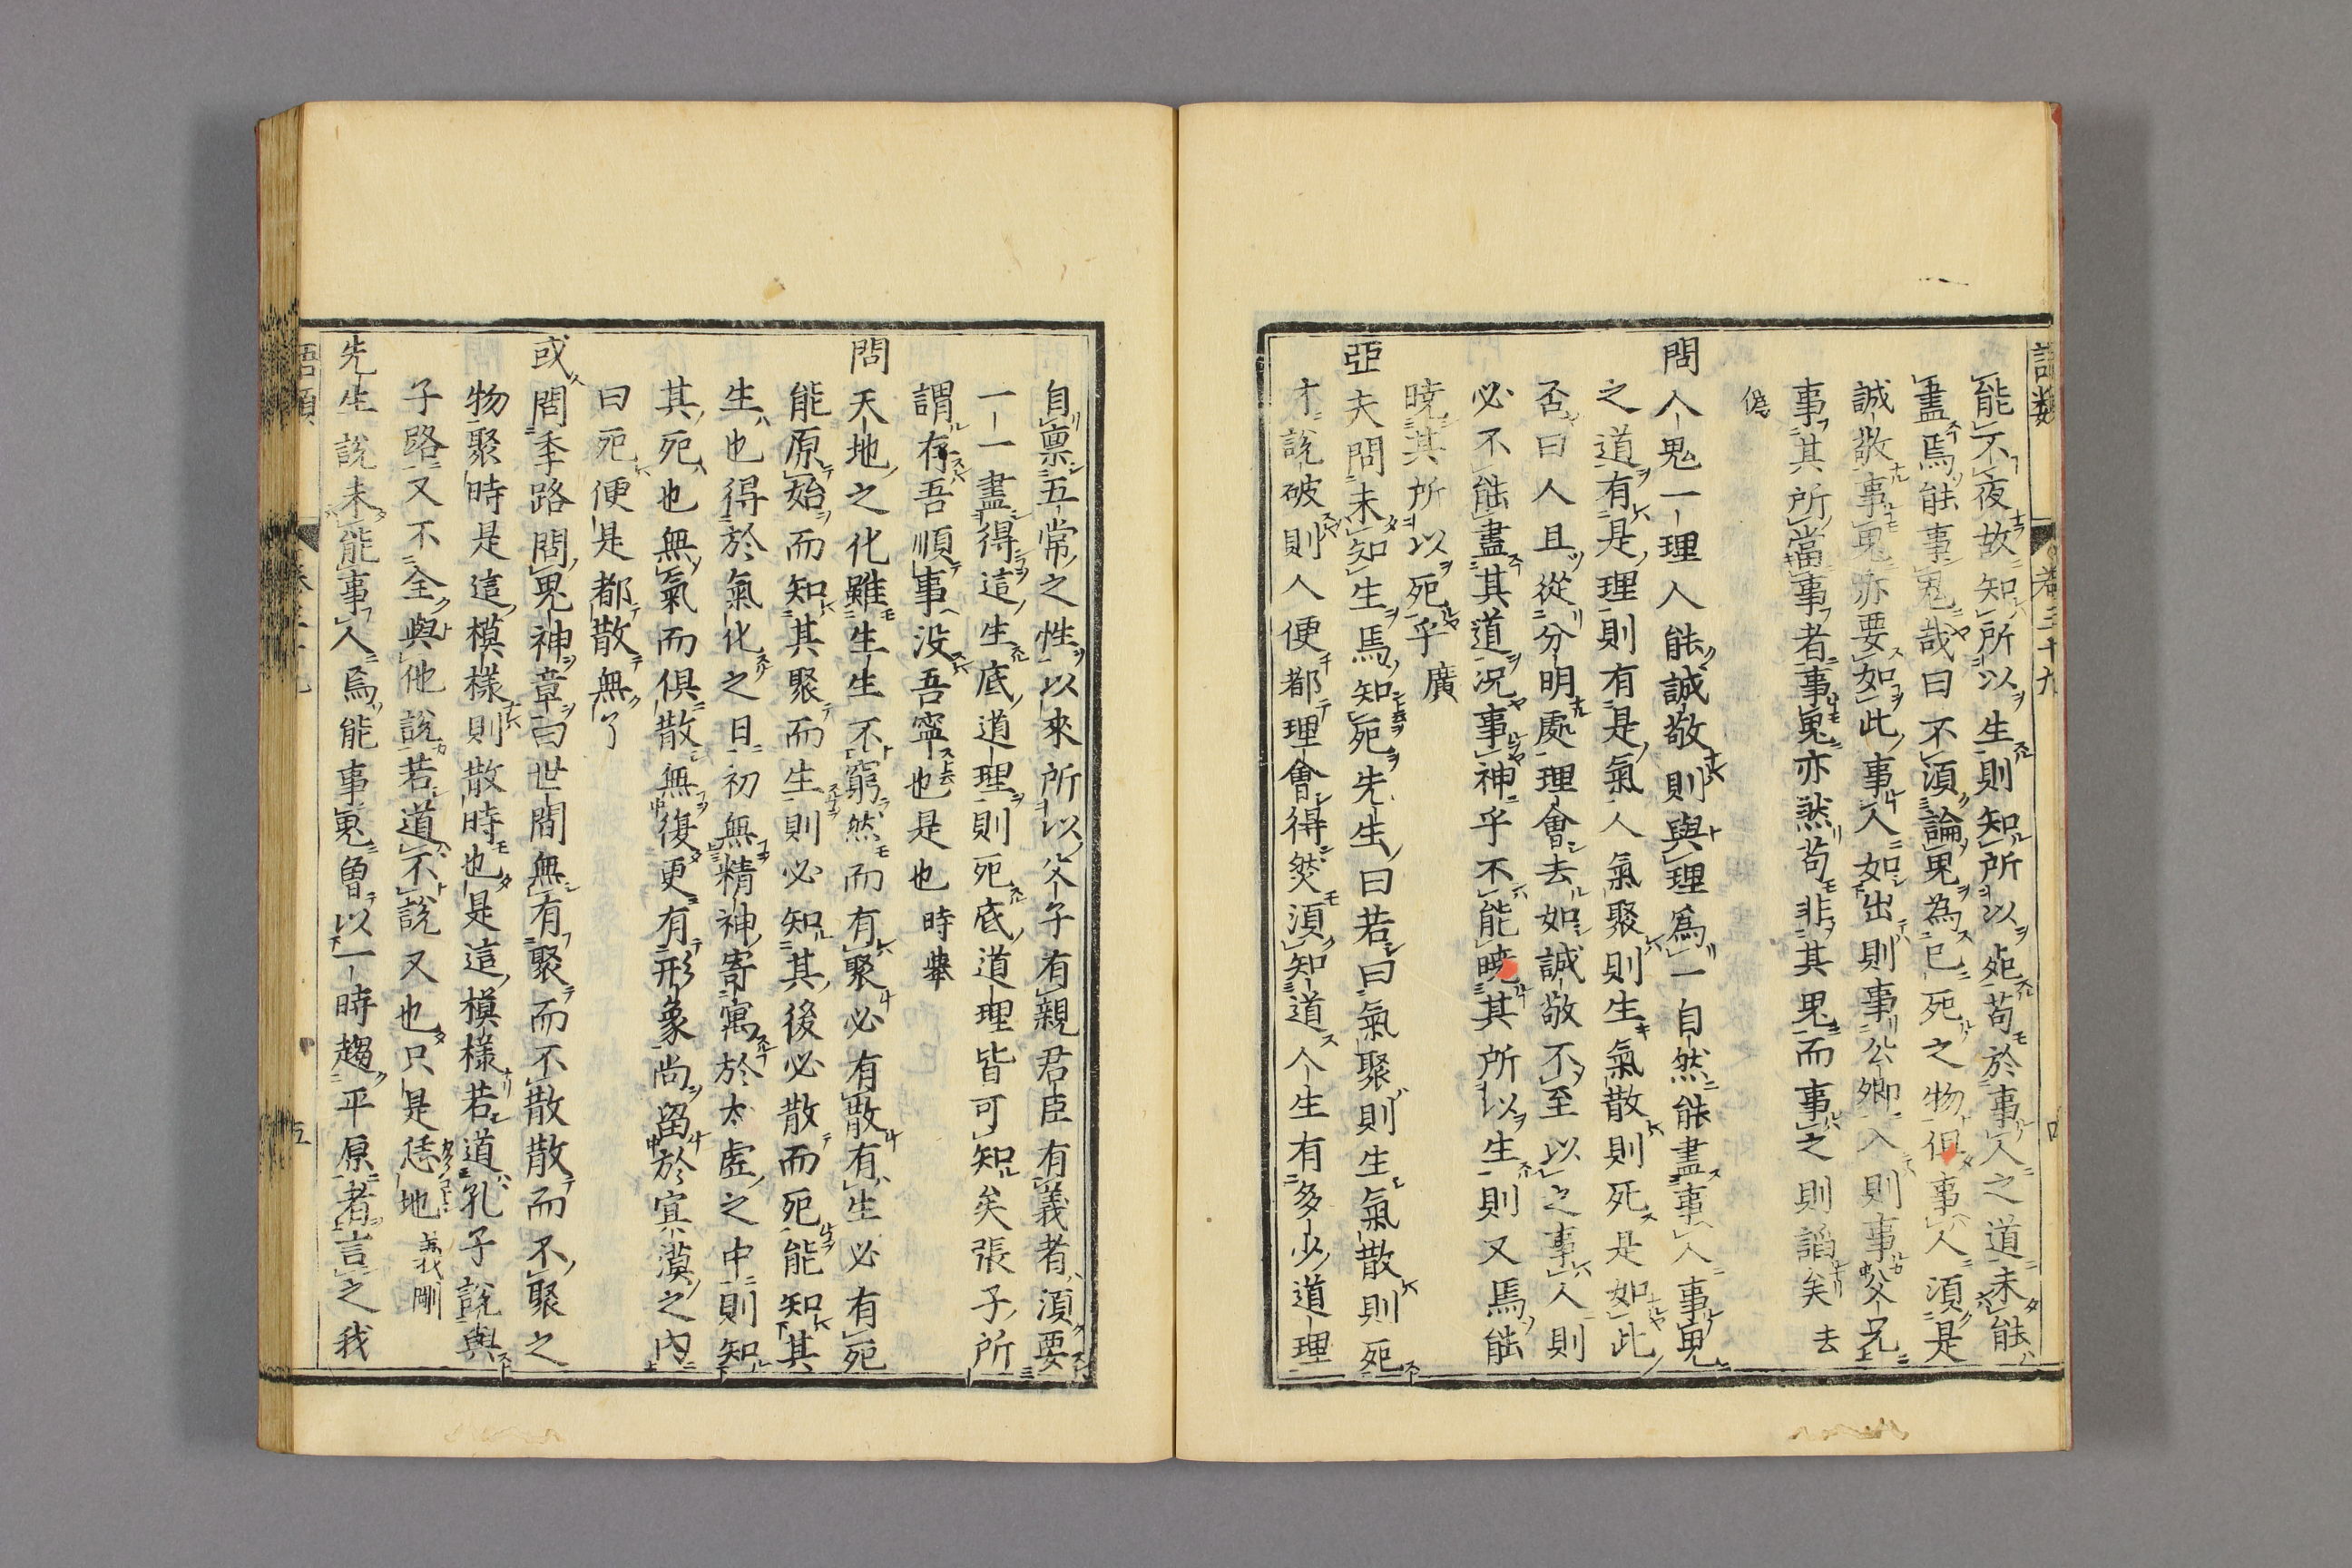 語類 卷三十九 四
能不夜故知所以生則知所以死苟於事人之道未能
盡焉能事鬼哉曰不須論鬼為已死之物但事人須是
誠敬事鬼亦要如此事人如出則事公卿入則事父兄
事其所當事者事鬼亦然苟非其鬼而事之則諂矣去
偽
問人鬼一理人能誠敬則與理爲一自然能盡事人事鬼
之道有是理則有是氣人氣聚則生氣散則死是如此
否曰人且從分明處理會去如誠敬不至以之事人則
必不能盡其道況事神乎不能曉其所以生則又焉能
曉其所以死乎廣
亞夫問未知生焉知死先生曰若曰氣聚則生氣散則死
才說破則人便都理會得然須知道人生有多少道理
自禀五常之性以來所以父子有親君臣有義者須要
一一盡得這生底道理則死底道理皆可知矣張子所
謂存吾順事没吾寧也是也時舉
問天地之化雖生生不窮然而有聚必有散有生必有死
能原始而知其聚而生則必知其後必散而死能知其
生也得於氣化之日初無精神寄寓於太虛之中則知
其死也無氣而俱散無復更有形象尚留於冥漠之内
曰死便是都散無了
或問季路問鬼神章曰世間無有聚而不散散而不聚之
物聚時是這模樣則散時也是這模樣若道孔子說與
子路又不全與他說若道不說又也只是恁地義剛
先生說未能事人焉能事鬼曽以一時趨平原者言之我
語類 卷三十九 五